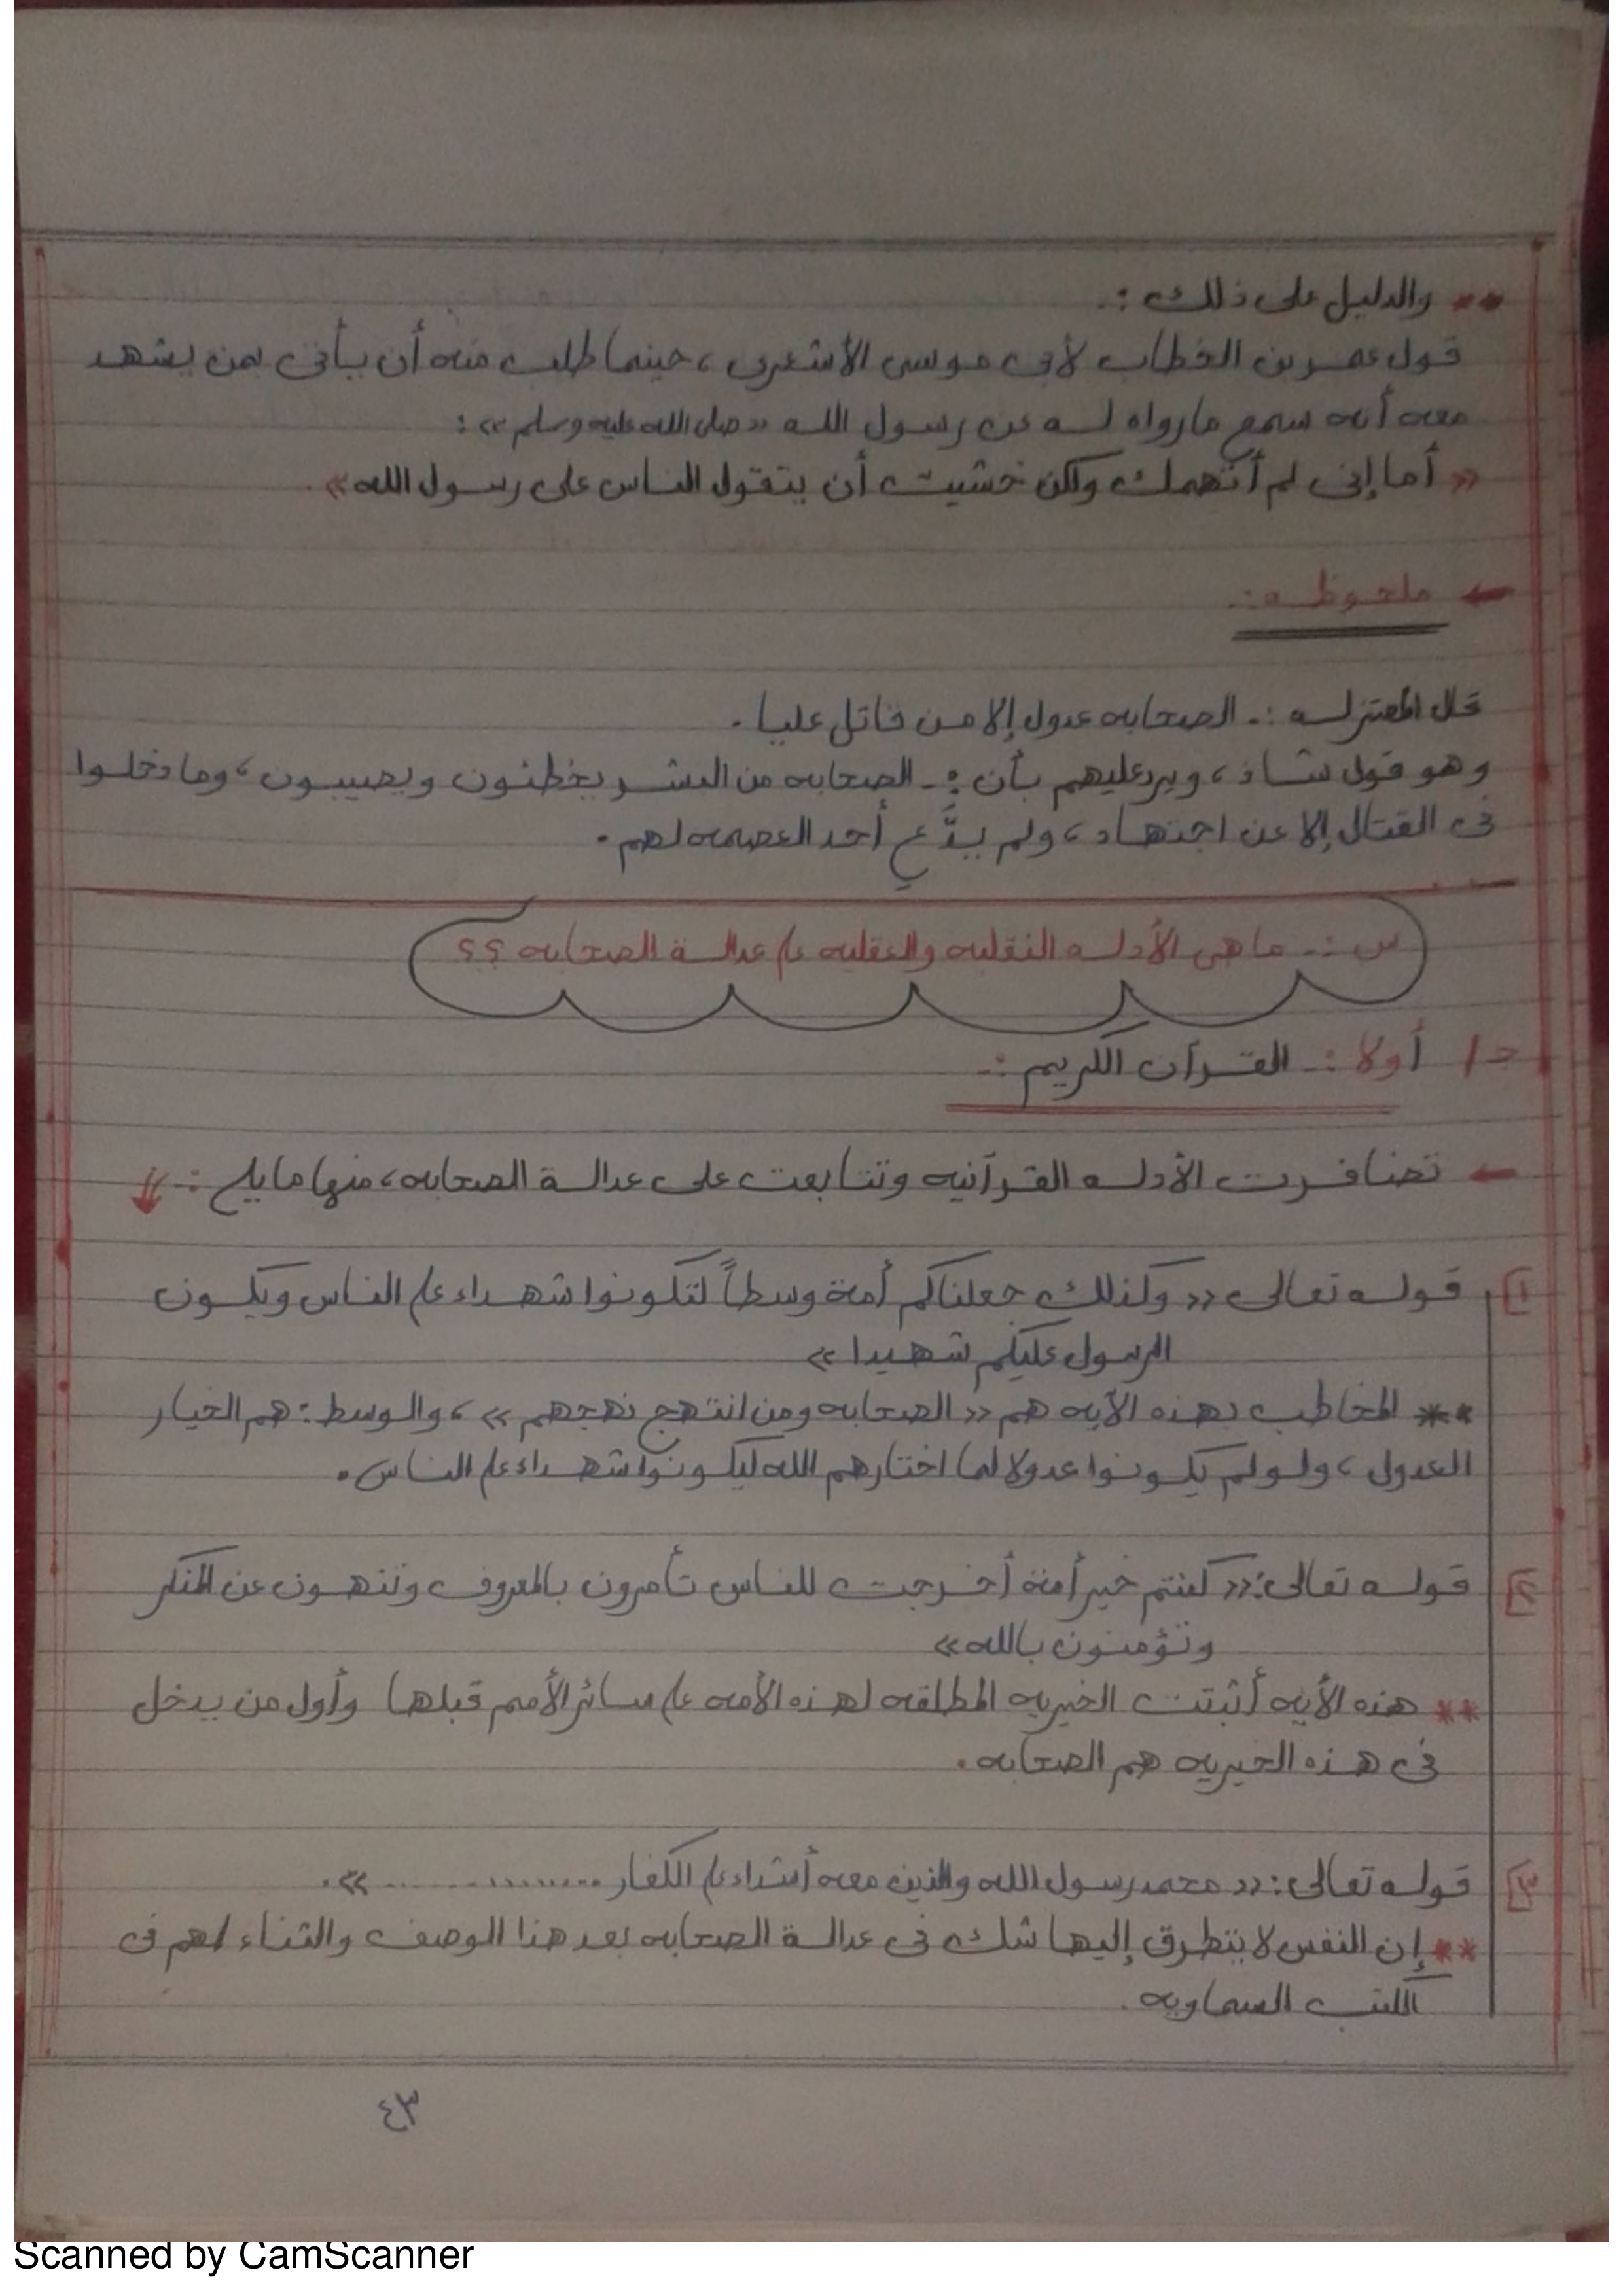 ** والدليل على ذلك :.
قول عمر بن الخطاب لأبى موسى الأشعرى ، حينما طلب منه أن يأتى بمن يشهد
معه أنه سمع مارواه له عن رسول الله « صلى الله عليه وسلم » :
« أما إنى لم أتهمك ولكن خشيت أن يتقول الناس على رسول الله » .
← ملحوظه :.
قال المعتزله :. الصحابه عدول إلا من قاتل عليا .
وهو قول شاذ ، ويرد عليهم بأن :. الصحابه من البشر يخطئون ويصيبون ، وما دخلوا
فى القتال إلا عن اجتهاد ، ولم يدَّع أحد العصمه لهم .
س :. ما هى الأدله النقليه والعقليه على عدالة الصحابه ؟؟
جـ / أولا :. القرآن الكريم :.
← تضافرت الأدله القرآنيه وتتابعت على عدالة الصحابه ، منها مايلى :.
١ قوله تعالى « وكذلك جعلناكم أمة وسطاً لتكونوا شهداء على الناس ويكون
الرسول عليكم شهيدا »
** المخاطب بهذه الآيه هم « الصحابه ومن انتهج نهجهم » ، والوسط : هم الخيار
العدول ، ولو لم يكونوا عدولا لما اختارهم الله ليكونوا شهداء على الناس .
٢ قوله تعالى : « كنتم خير أمة أخرجت للناس تأمرون بالمعروف وتنهون عن المنكر
وتؤمنون بالله »
** هذه الأيه أثبتت الخيريه المطلقه لهذه الأمه على سائر الأمم قبلها وأول من يدخل
فى هذه الخيريه هم الصحابه .
٣ قوله تعالى : « محمد رسول الله والذين معه أشداء على الكفار .................. » .
** إن النفس لا يتطرق إليها شك فى عدالة الصحابه بعد هذا الوصف والثناء لهم فى
الكتب السماويه .
٤٣
Scanned by CamScanner